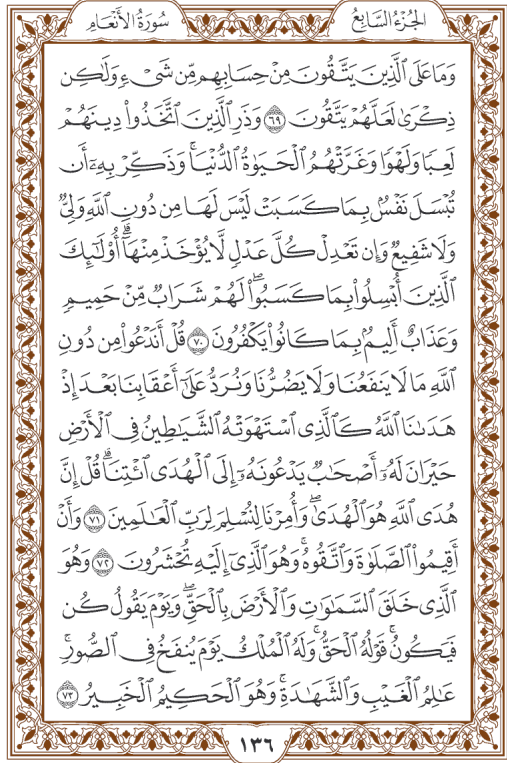 الجُزءُ السَّابِعُ
سُورَةُ الأَنْعَام
وَمَا عَلَى ٱلَّذِينَ يَتَّقُونَ مِنْ حِسَابِهِم مِّن شَىْءٍ وَلَٰكِن
ذِكْرَىٰ لَعَلَّهُمْ يَتَّقُونَ ٦٩ وَذَرِ ٱلَّذِينَ ٱتَّخَذُوا۟ دِينَهُمْ
لَعِبًا وَلَهْوًا وَغَرَّتْهُمُ ٱلْحَيَوٰةُ ٱلدُّنْيَا ۚ وَذَكِّرْ بِهِۦٓ أَن
تُبْسَلَ نَفْسٌۢ بِمَا كَسَبَتْ لَيْسَ لَهَا مِن دُونِ ٱللَّهِ وَلِىٌّ
وَلَا شَفِيعٌ وَإِن تَعْدِلْ كُلَّ عَدْلٍ لَّا يُؤْخَذْ مِنْهَآ ۗ أُو۟لَٰٓئِكَ
ٱلَّذِينَ أُبْسِلُوا۟ بِمَا كَسَبُوا۟ ۖ لَهُمْ شَرَابٌ مِّنْ حَمِيمٍ
وَعَذَابٌ أَلِيمٌۢ بِمَا كَانُوا۟ يَكْفُرُونَ ٧٠ قُلْ أَنَدْعُوا۟ مِن دُونِ
ٱللَّهِ مَا لَا يَنفَعُنَا وَلَا يَضُرُّنَا وَنُرَدُّ عَلَىٰٓ أَعْقَابِنَا بَعْدَ إِذْ
هَدَىٰنَا ٱللَّهُ كَٱلَّذِى ٱسْتَهْوَتْهُ ٱلشَّيَٰطِينُ فِى ٱلْأَرْضِ
حَيْرَانَ لَهُۥٓ أَصْحَٰبٌ يَدْعُونَهُۥٓ إِلَى ٱلْهُدَى ٱئْتِنَا ۗ قُلْ إِنَّ
هُدَى ٱللَّهِ هُوَ ٱلْهُدَىٰ ۖ وَأُمِرْنَا لِنُسْلِمَ لِرَبِّ ٱلْعَٰلَمِينَ ٧١ وَأَنْ
أَقِيمُوا۟ ٱلصَّلَوٰةَ وَٱتَّقُوهُ ۚ وَهُوَ ٱلَّذِىٓ إِلَيْهِ تُحْشَرُونَ ٧٢ وَهُوَ
ٱلَّذِى خَلَقَ ٱلسَّمَٰوَٰتِ وَٱلْأَرْضَ بِٱلْحَقِّ ۖ وَيَوْمَ يَقُولُ كُن
فَيَكُونُ ۚ قَوْلُهُ ٱلْحَقُّ ۚ وَلَهُ ٱلْمُلْكُ يَوْمَ يُنفَخُ فِى ٱلصُّورِ ۚ
عَٰلِمُ ٱلْغَيْبِ وَٱلشَّهَٰدَةِ ۚ وَهُوَ ٱلْحَكِيمُ ٱلْخَبِيرُ ٧٣
١٣٦